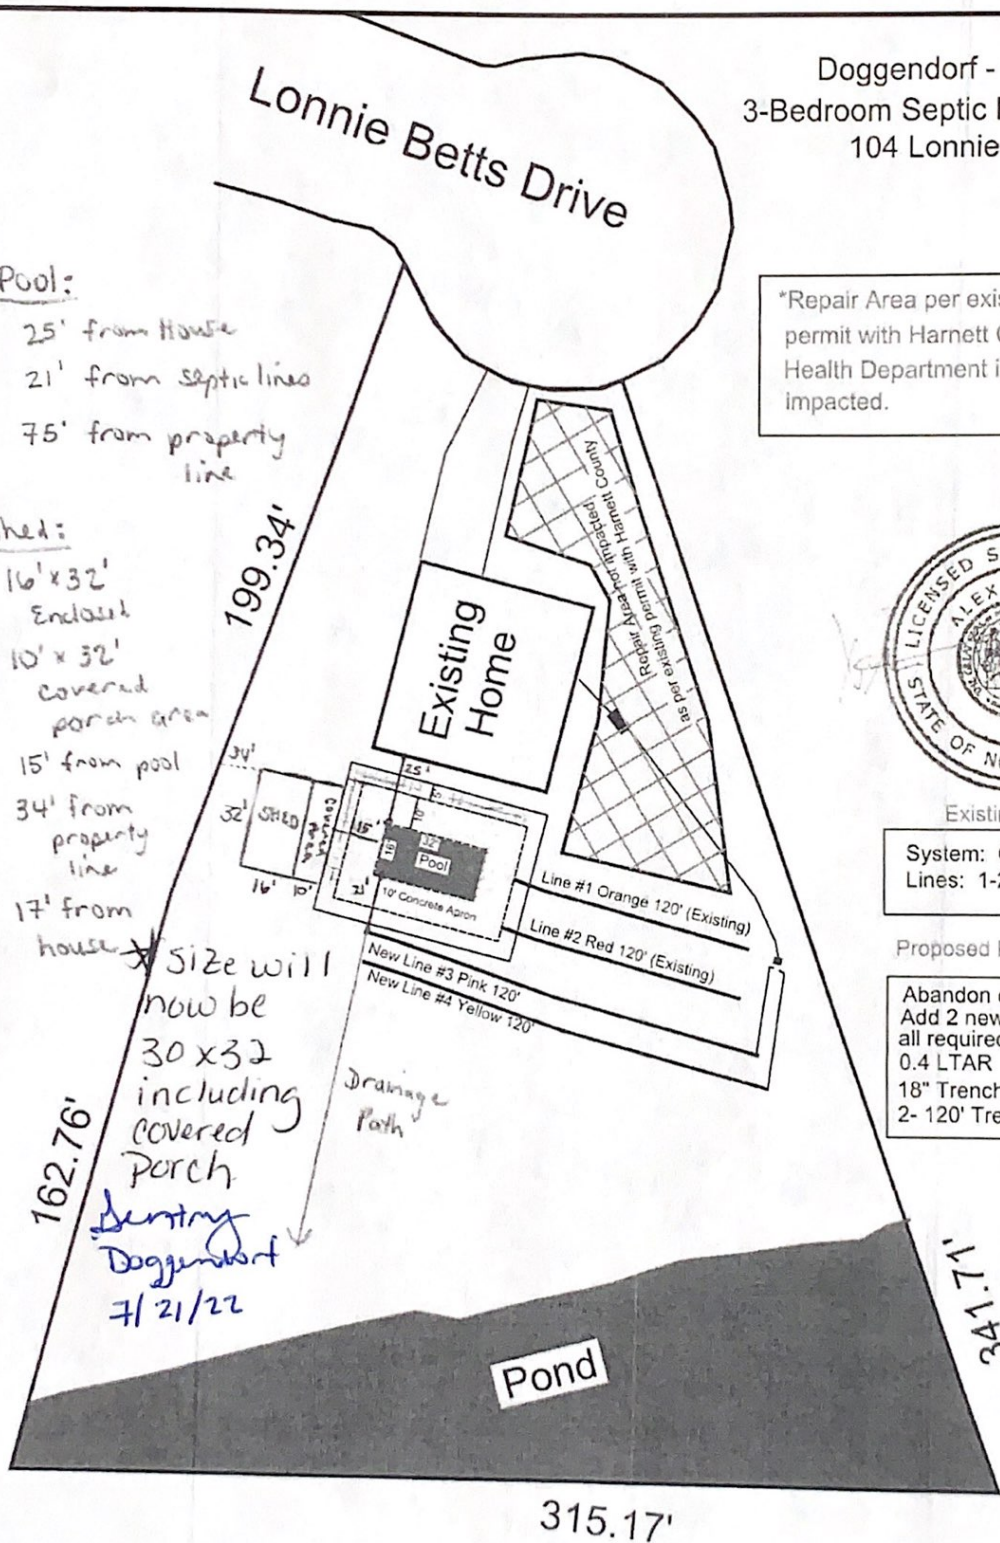 Lonnie Betts Drive
Doggendorf -
3-Bedroom Septic
104 Lonnie
*Repair Area per exis
permit with Harnett
Health Department i
impacted.
Pool:
25' from House
21' from septic lines
75' from property
line
hed:
16' x 32'
Enclosed
10' x 32'
covered
porch area
15' from pool
34' from
property
line
17' from
house
* Size will
now be
30 x 32
including
covered
Porch.
Doggendorf
7/21/22
199.34'
162.76'
341.71'
315.17'
Existing
Home
Repair Area not impacted
as per existing permit with Harnett County
34'
32'
SHED
Covered
Area
16'
10'
25'
15'
21'
10'
32'
16'
Pool
10' Concrete Apron
Line #1 Orange 120' (Existing)
Line #2 Red 120' (Existing)
New Line #3 Pink 120'
New Line #4 Yellow 120'
Drainage
Path
Pond
LICENSED S
ALEX
STATE OF N
Existin
System:
Lines: 1-2
Proposed
Abandon
Add 2 new
all required
0.4 LTAR
18" Trench
2- 120' Tre